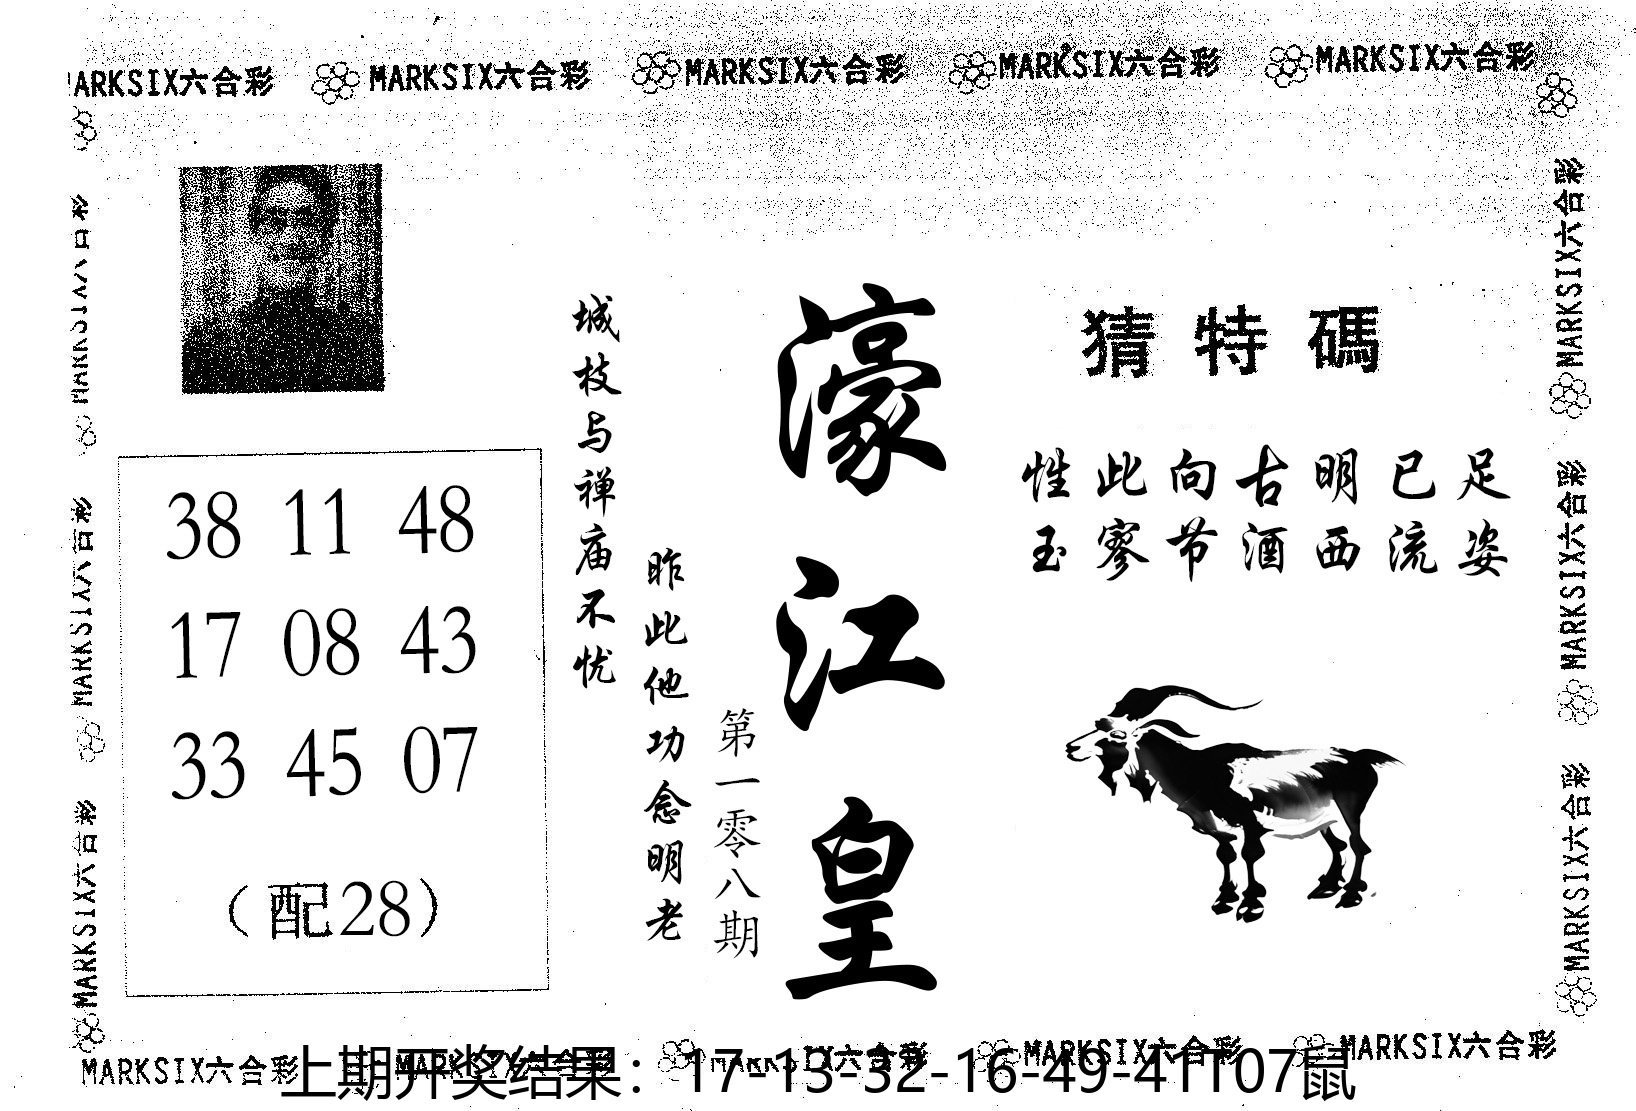 MARKSIX六合彩 MARKSIX六合彩 MARKSIX六合彩 MARKSIX六合彩 MARKSIX六合彩
MARKSIX六合彩
MARKSIX六合彩
MARKSIX六合彩
38 11 48
17 08 43
33 45 07
(配28)
城枝与禅庙不忧
昨此他功念明老
第一零八期
濠江皇
猜特碼
性此向古明已足
玉寥节酒西流姿
MARKSIX六合彩
MARKSIX六合彩
MARKSIX六合彩
MARKSIX六合彩 MARKSIX六合彩 MARKSIX六合彩 MARKSIX六合彩 MARKSIX六合彩
上期开奖结果：17-13-32-16-49-41T07鼠